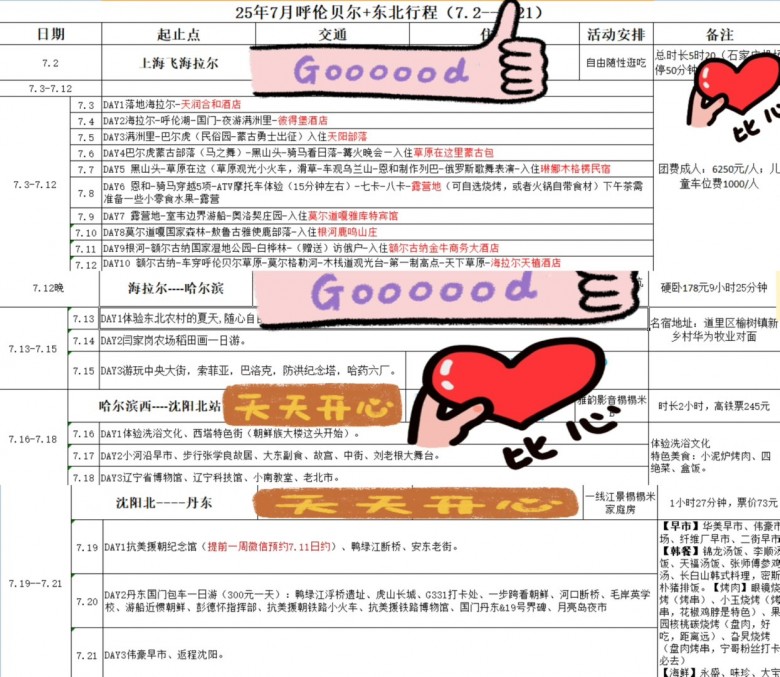 25年7月呼伦贝尔+东北行程（7.2--
21）
日期 起止点 交通 活动安排 备注
7.2 上海飞海拉尔 Goooood 自由随性逛吃 总时长5时20（石家庄机场
停50分钟
7.3-7.12
7.3 DAY1落地海拉尔-天润合和酒店
7.4 DAY2海拉尔-呼伦湖-国门-夜游满洲里-彼得堡酒店
7.5 DAY3满洲里-巴尔虎（民俗园-蒙古勇士出征）-入住天阳部落
7.6 DAY4巴尔虎蒙古部落（马之舞）-黑山头-骑马看日落-篝火晚会-入住草原在这里蒙古包
7.3-7.12
7.7 DAY5 黑山头-草原在这（草原观光小火车，滑草-车观乌兰山-恩和制作列巴-俄罗斯歌舞表演-入住琳娜木格楞民宿
7.8 DAY6 恩和-骑马穿越5项-ATV摩托车体验（15分钟左右）-七卡-八卡-露营地（可自选烧烤，或者火锅自带食材）下午茶需
准备一些小零食水果-露营
7.9 DAY7 露营地-室韦边界游船-奥洛契庄园-入住莫尔道嘎雅库特宾馆
7.10 DAY8莫尔道嘎国家森林-敖鲁古雅使鹿部落-入住根河鹿鸣山庄
7.11 DAY9根河-额尔古纳国家湿地公园-白桦林-（赠送）访俄户-入住额尔古纳金牛商务大酒店
7.12 DAY10 额尔古纳-车穿呼伦贝尔草原-莫尔格勒河-木栈道观光台-第一制高点-天下草原-海拉尔天植酒店
比心
团费成人：6250元/人；儿
童车位费1000/人
7.12晚 海拉尔----哈尔滨 Goooood 硬卧178元9小时25分钟
7.13 DAY1体验东北农村的夏天,随心自
7.13-7.15
7.14 DAY2闫家岗农场稻田画一日游。
7.15 DAY3游玩中央大街，索菲亚，巴洛克，防洪纪念塔，哈药六厂。
名宿地址：道里区榆树镇新
乡村华为牧业对面
哈尔滨西----沈阳北站 天天开心 雅韵影音榻榻米 时长2小时，高铁票245元
比心
7.16-7.18
7.16 DAY1体验洗浴文化、西塔特色街（朝鲜族大楼这头开始）。
7.17 DAY2小河沿早市、步行张学良故居、大东副食、故宫、中街、刘老根大舞台。
7.18 DAY3辽宁省博物馆、辽宁科技馆、小南教堂、老北市。
体验洗浴文化
特色美食：小泥炉烤肉、四
绝菜、盒饭。
沈阳北----丹东 天天开心 一线江景榻榻米
家庭房 1小时27分钟，票价73元
7.19 DAY1抗美援朝纪念馆（提前一周微信预约7.11日约）、鸭绿江断桥、安东老街。
7.19--7.21
7.20 DAY2丹东国门包车一日游（300元一天）：鸭绿江浮桥遗址、虎山长城、G331打卡处、一步跨看朝鲜、河口断桥、毛岸英学
校、游船近惯朝鲜、彭德怀指挥部、抗美援朝铁路小火车、抗美援铁路博物馆、国门丹东&19号界碑、月亮岛夜市
7.21 DAY3伟豪早市、返程沈阳。
【早市】华美早市、伟豪市
场、纤维厂早市、二街早市
【韩餐】锦龙汤饭、李顺汤
饭、天福汤饭、张师傅参鸡
汤、长白山韩式料理，密斯
朴猪排饭。【烤肉】眼镜烧
烤（烤串）、小玉烧烤（烤
串，花椒鸡脖是特色）、果
园核桃碳烧烤（盘肉，好
吃，距离远）、旮旯烧烤
（盘肉烤串，宁哥粉丝打卡
必去）
【海鲜】永盛、味珍、大宝